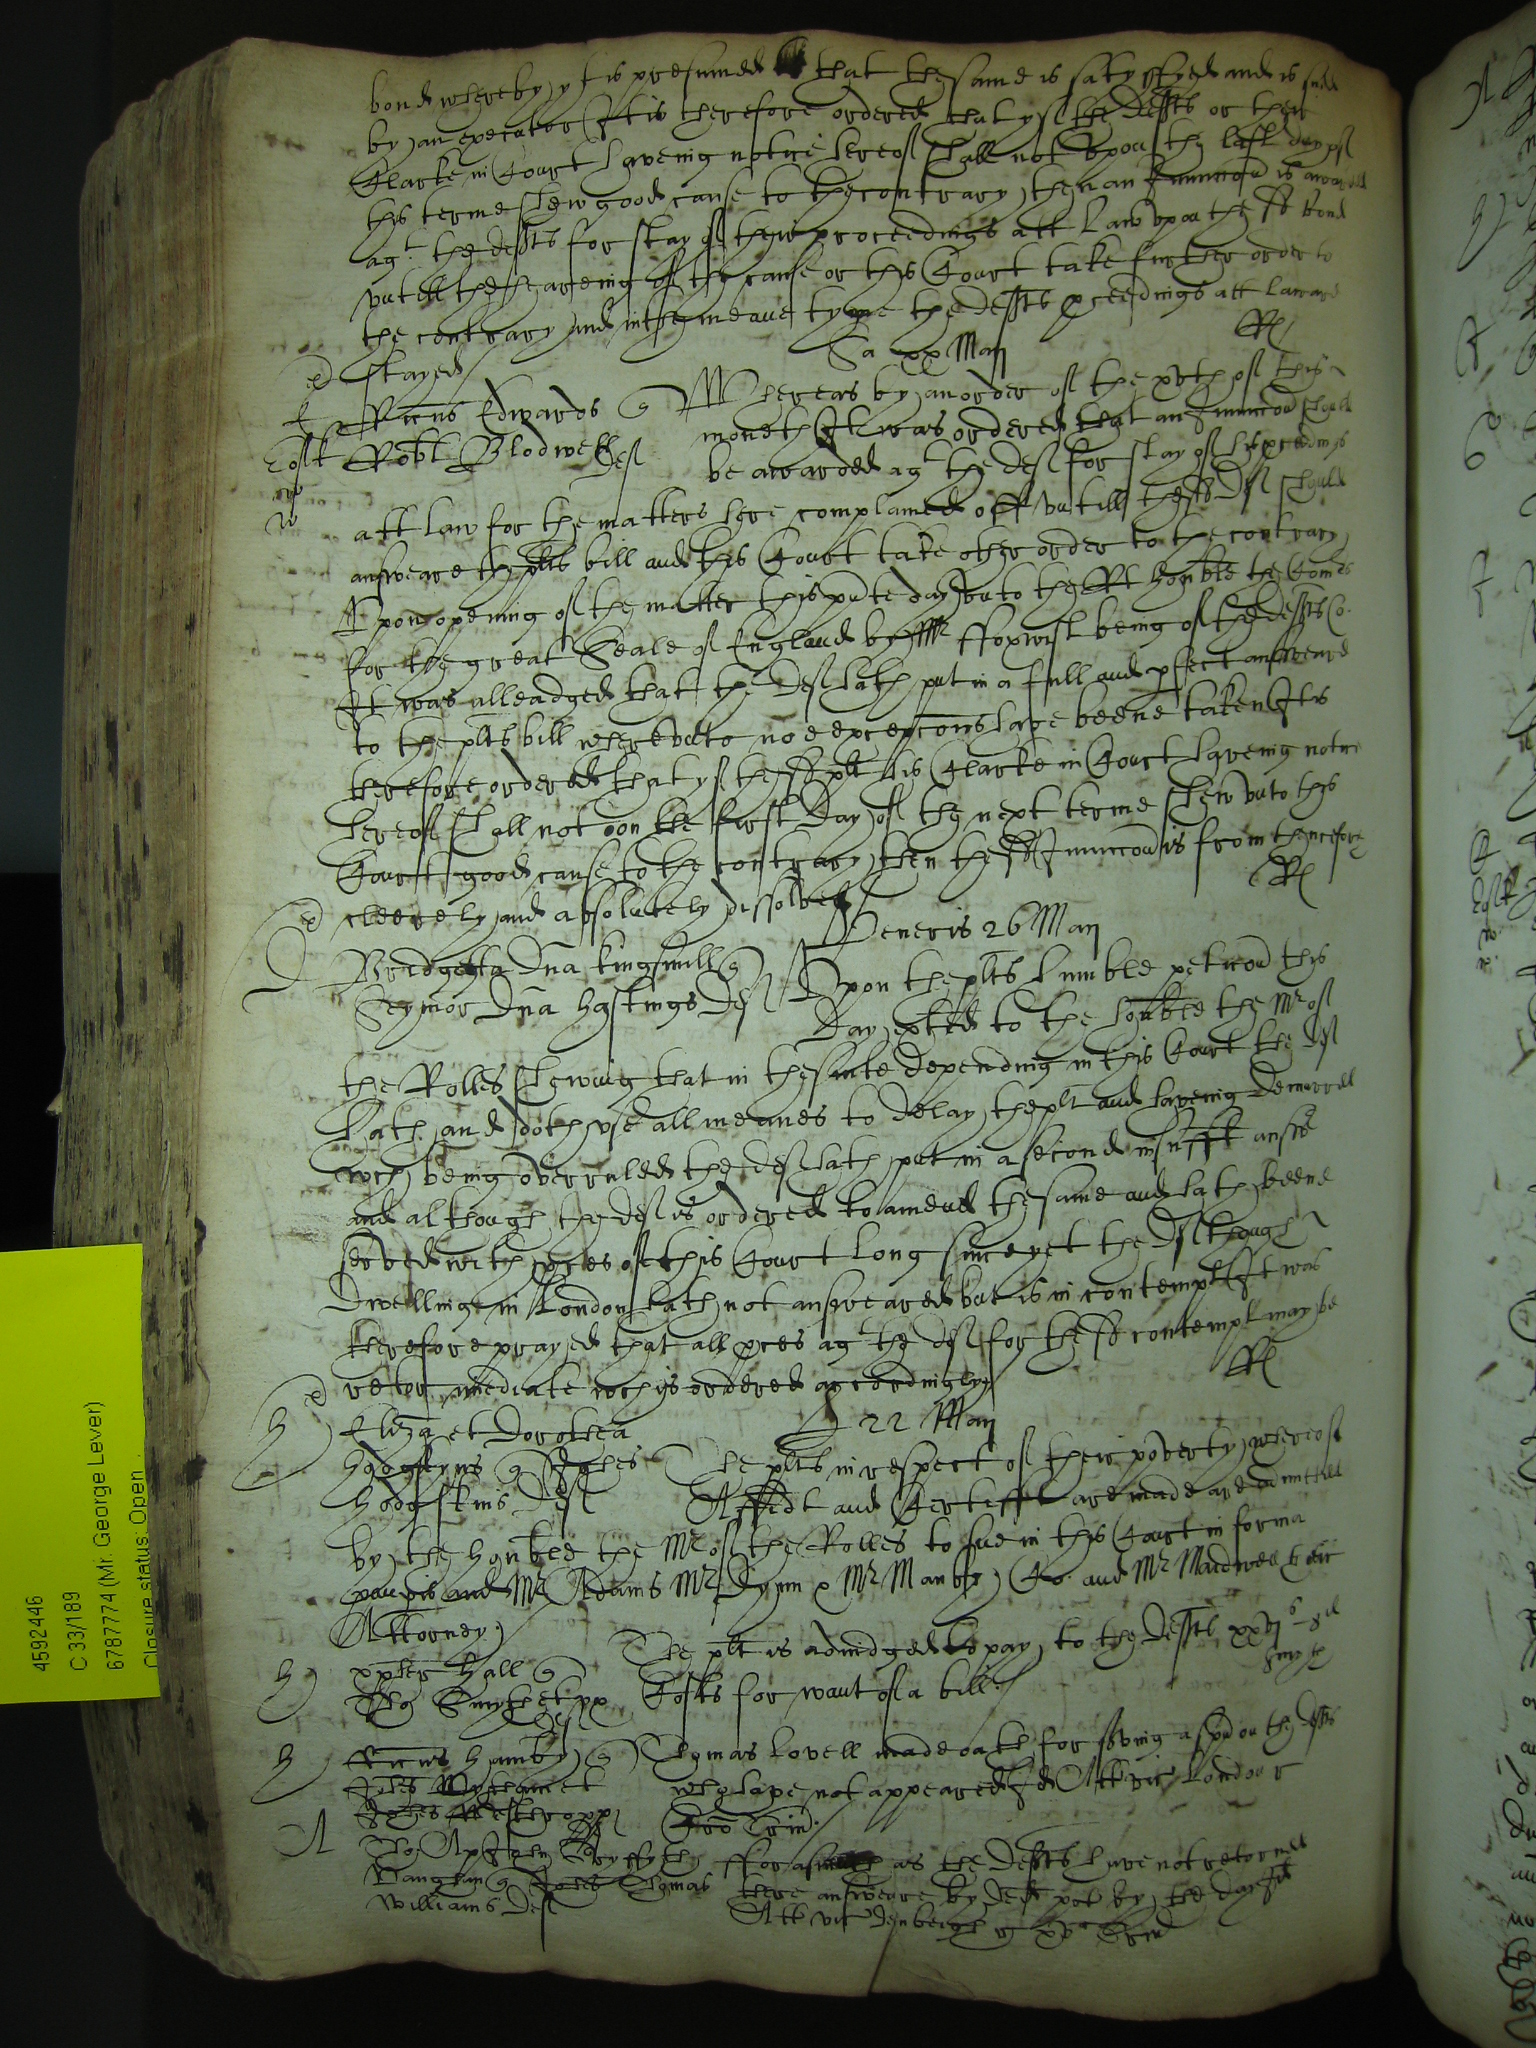 bond whereby yt is presumed that the same is satysfyed and is sued
by an executor It is therefore ordered that yf the defts or their
Clarke in Court haveing notice hereof shall not vpon the last day of
this terme shew good cause to the contrary then an Iniunccon is awarded
agt the defts for stay of their proceedings att Law vpon the sd bond
vntill the heareing of the cause or this Court take further order to
the contrary and in the meane tyme the defts pceedings att law are
stayed
Sa xx Maij
Ricus Edwards q
Robt Blodwell Def
Whereas by an order of the xvth of this
moneth It was ordered that an Iniunccon should
be awarded agt the def for stay of his pceedings
att law for the matters here complained off vntill the sd Def should
answeare the plts bill and this Court take other order to the contrary
Vpon opening of the matter this pnte day vnto the Rt honble the Comrs
for the great Seale of England by Mr ffoxwist being of the defts Co.
It was alleadged that the Def hath put in a full and pfect answeare
to the plts bill wherevnto noe excepcons have beene taken It is
therefore ordered that yf the sd plt his Clarke in Court haveing notice
hereof shall not on the first Day of the next terme shew vnto this
Court good cause to the contrary then the sd Iniunccon is from thenceforth
cleerely and absolutely dissolved
Veneris 26 Maij
Bridgetta Dna Kingsmill q
Seymor Dna Hastings Def
Vpon the plts humble peticon this
Day pferred to the honble the Mr of
the Rolles shewing that in the suite depending in this Court the Def
hath and doth vse all meanes to delay the plt and haveing demurred
wch being overruled the def hath put in a second insufft answ
and although the def is ordered to amend the same and hath beene
served with pces of this Court long since yet the Def though
Dwelling in London hath not answeared but is in contempt It was
therefore prayed that all pces agt the def for the sd contempt may be
retor imediate wch is ordered accordingly
22 Maij
Eliza et Dorothea
Hodgskyns q Johes
Hodgskins Def
The plts in respect of their poverty whereof
Affidt and Certifft are made are admitted
by the honble the Mr of the Rolles to sue in this Court in forma
paupis and Mr Adams Mr Fynn & Mr Manby Co. and Mr Maidwell their
Attorney
xpofer Hall q
Smyth et vx
Def
The plt is adiudged to pay to the defts xxvj s 8d
Costs for want of a bill
Ricus Hamby q
Johes et
Johes Westhropp
Thomas Lovell made oath for serving a spena on the defts
who have not appeared Id Att vic London r
Cro Trin
Vaughan q Johes Thomas
Williams Def
fforasmuch as the Defts have not retorned
there answeare by Ded pot by the day
Att vic Denbeigh r xva Trin
4592446
C 33/189
6787774 (Mr. George Lever)
Closure status: Open